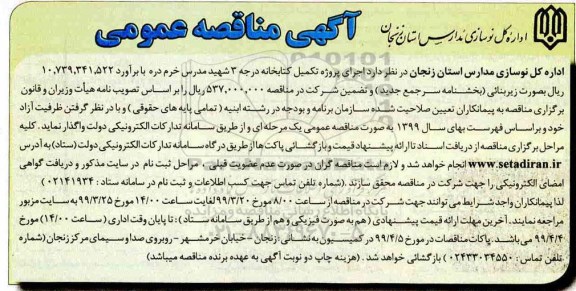 اداره کل نوسازی مدارس استان زنجان
آگهی مناقصه عمومی
اداره کل نوسازی مدارس استان زنجان در نظر دارد اجرای پروژه تکمیل کتابخانه درجه ۳ شهید مدرس خرم دره با برآورد ۱۰,۷۳۹,۳۴۱,۵۲۲
ریال بصورت زیربنائی (بخشنامه سرجمع جدید) و تضمین شرکت در مناقصه ۵۳۷,۰۰۰,۰۰۰ ریال را بر اساس تصویب نامه هیأت وزیران و قانون
برگزاری مناقصه به پیمانکاران تعیین صلاحیت شده سازمان برنامه و بودجه در رشته ابنیه (تمامی پایه های حقوقی) و با در نظر گرفتن ظرفیت آزاد
خود و بر اساس فهرست بهای سال ۱۳۹۹ به صورت مناقصه عمومی یک مرحله ای و از طریق سامانه تدارکات الکترونیکی دولت واگذار نماید. کلیه
مراحل برگزاری مناقصه از دریافت اسناد تا ارائه پیشنهاد قیمت و بازگشائی پاکت ها از طریق درگاه سامانه تدارکات الکترونیکی دولت (ستاد) به آدرس
www.setadiran.ir انجام خواهد شد و لازم است مناقصه گران در صورت عدم عضویت قبلی، مراحل ثبت نام در سایت مذکور و دریافت گواهی
امضای الکترونیکی را جهت شرکت در مناقصه محقق سازند. (شماره تلفن تماس جهت کسب اطلاعات و ثبت نام در سامانه ستاد: ۰۲۱۴۱۹۳۴)
لذا پیمانکاران واجد شرایط می توانند جهت شرکت در مناقصه از ساعت ۸/۰۰ مورخ ۹۹/۳/۲۰ لغایت ساعت ۱۴/۰۰ مورخ ۹۹/۳/۲۵ به سایت مزبور
مراجعه نمایند. آخرین مهلت ارائه قیمت پیشنهادی (هم به صورت فیزیکی و هم از طریق سامانه ستاد): تا پایان وقت اداری (ساعت ۱۴/۰۰) مورخ
۹۹/۴/۴ می باشند. پاکات مناقصات در مورخ ۹۹/۴/۵ در کمیسیون به نشانی: زنجان - خیابان خرمشهر - روبروی صدا و سیمای مرکز زنجان (شماره
تلفن تماس: ۰۲۴۳۳۰۳۴۵۵۰) بازگشائی خواهد شد. (هزینه چاپ دو نوبت آگهی به عهده برنده مناقصه میباشد)